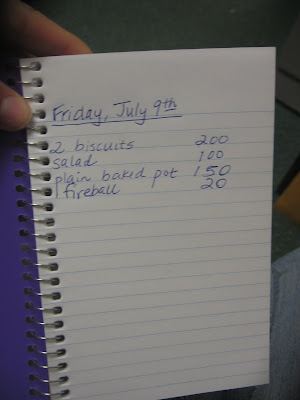 Friday, July 9th
2 biscuits 200
salad 100
plain baked pot 150
1 fireball 20